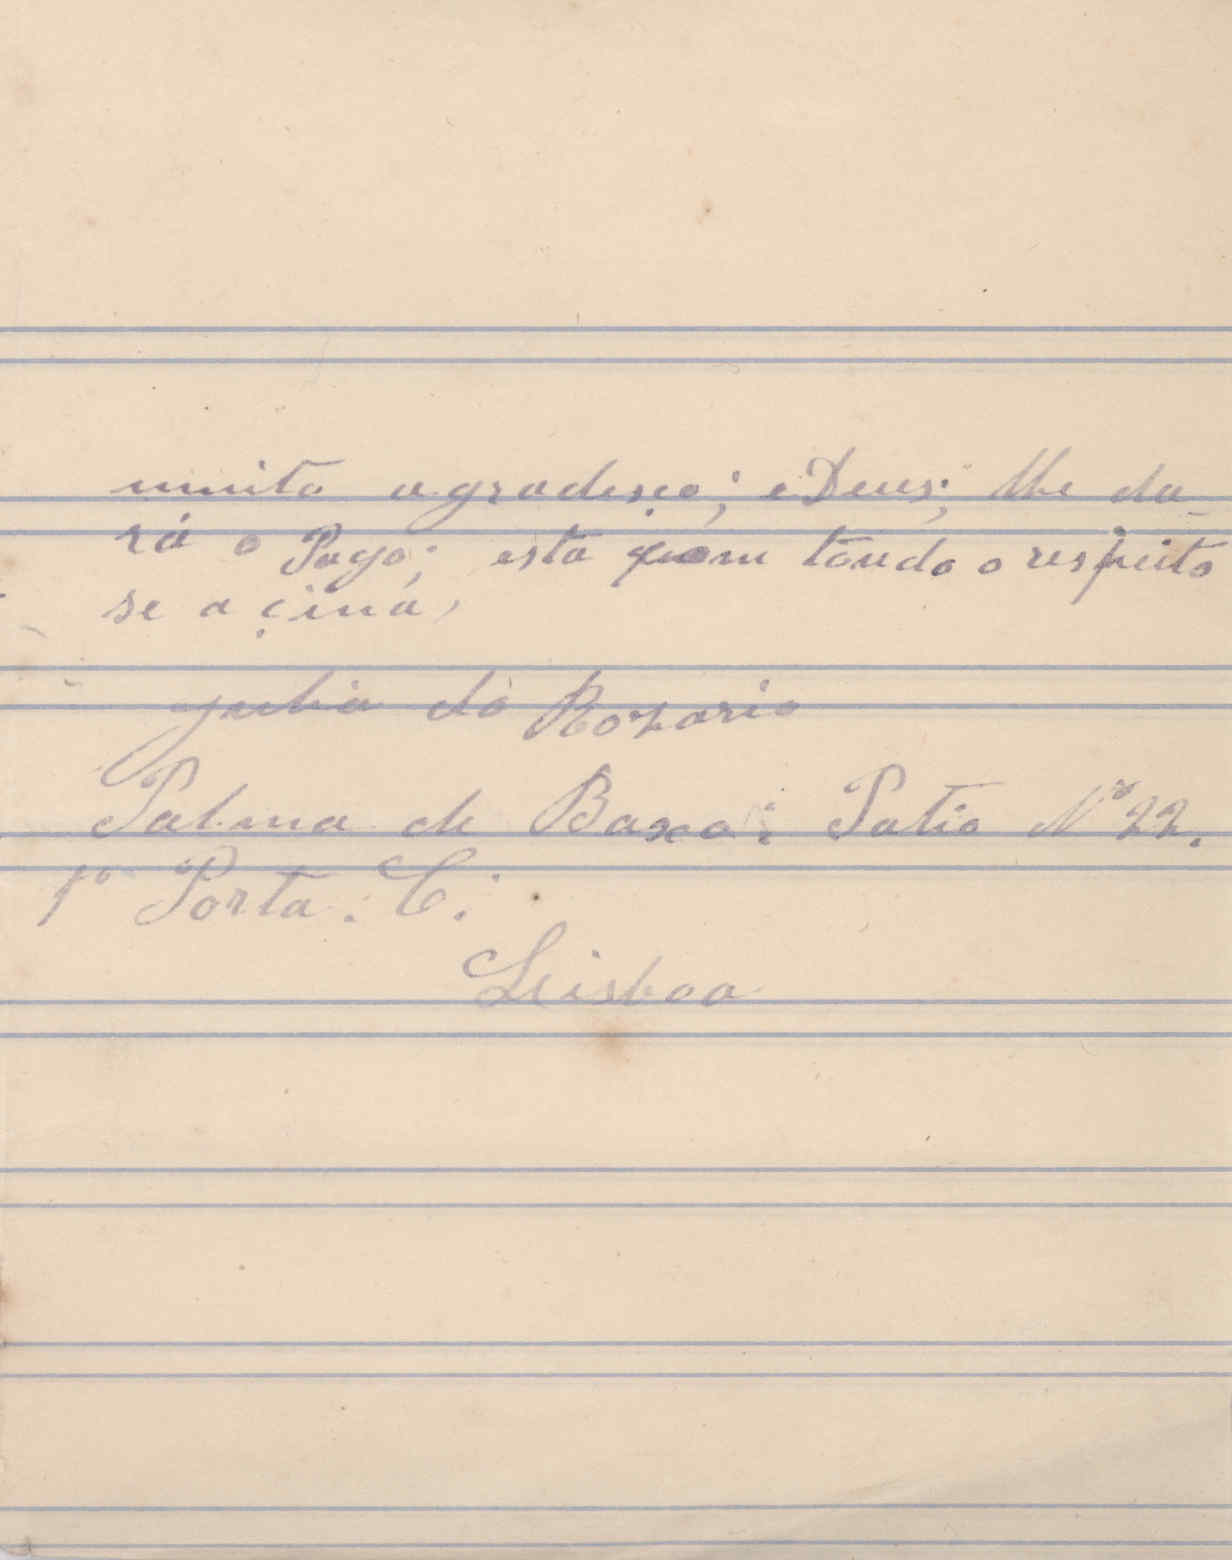 muito agradesço; e Deus; lhe da_
rá o Pago; esta quom toudo o respeito
se a çina,
Julia do Rozario
Palma de Baxo: Patio Nº 22.
1º Porta: C:
Lisboa